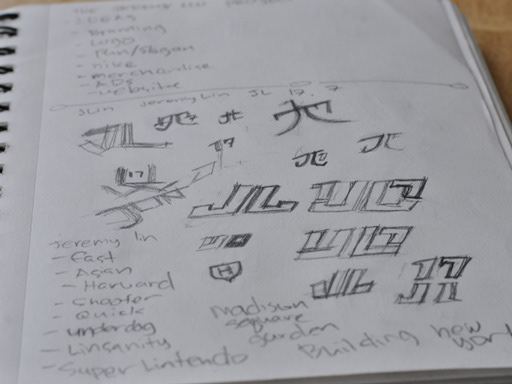 IDEAS
- Branding
- Logo
- Fun/slogan
- nike
- merchandise
- ADS
- website
JLin Jeremy Lin JL 17. 7
17
17
JL
H
17
Jeremy lin
- Fast
- Asian
- Harvard
- shooter
- Quick
- underdog
- Linsanity
- Super Lintendo
madison
square
garden
Building new
york